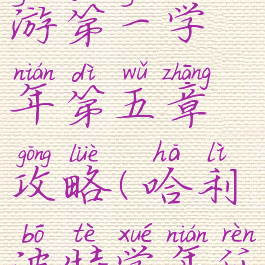 游第一学
nián dì wǔ zhāng
年第五章
gōng lüè hā lì
攻略(哈利
bō tè xué nián rèn
波特学年